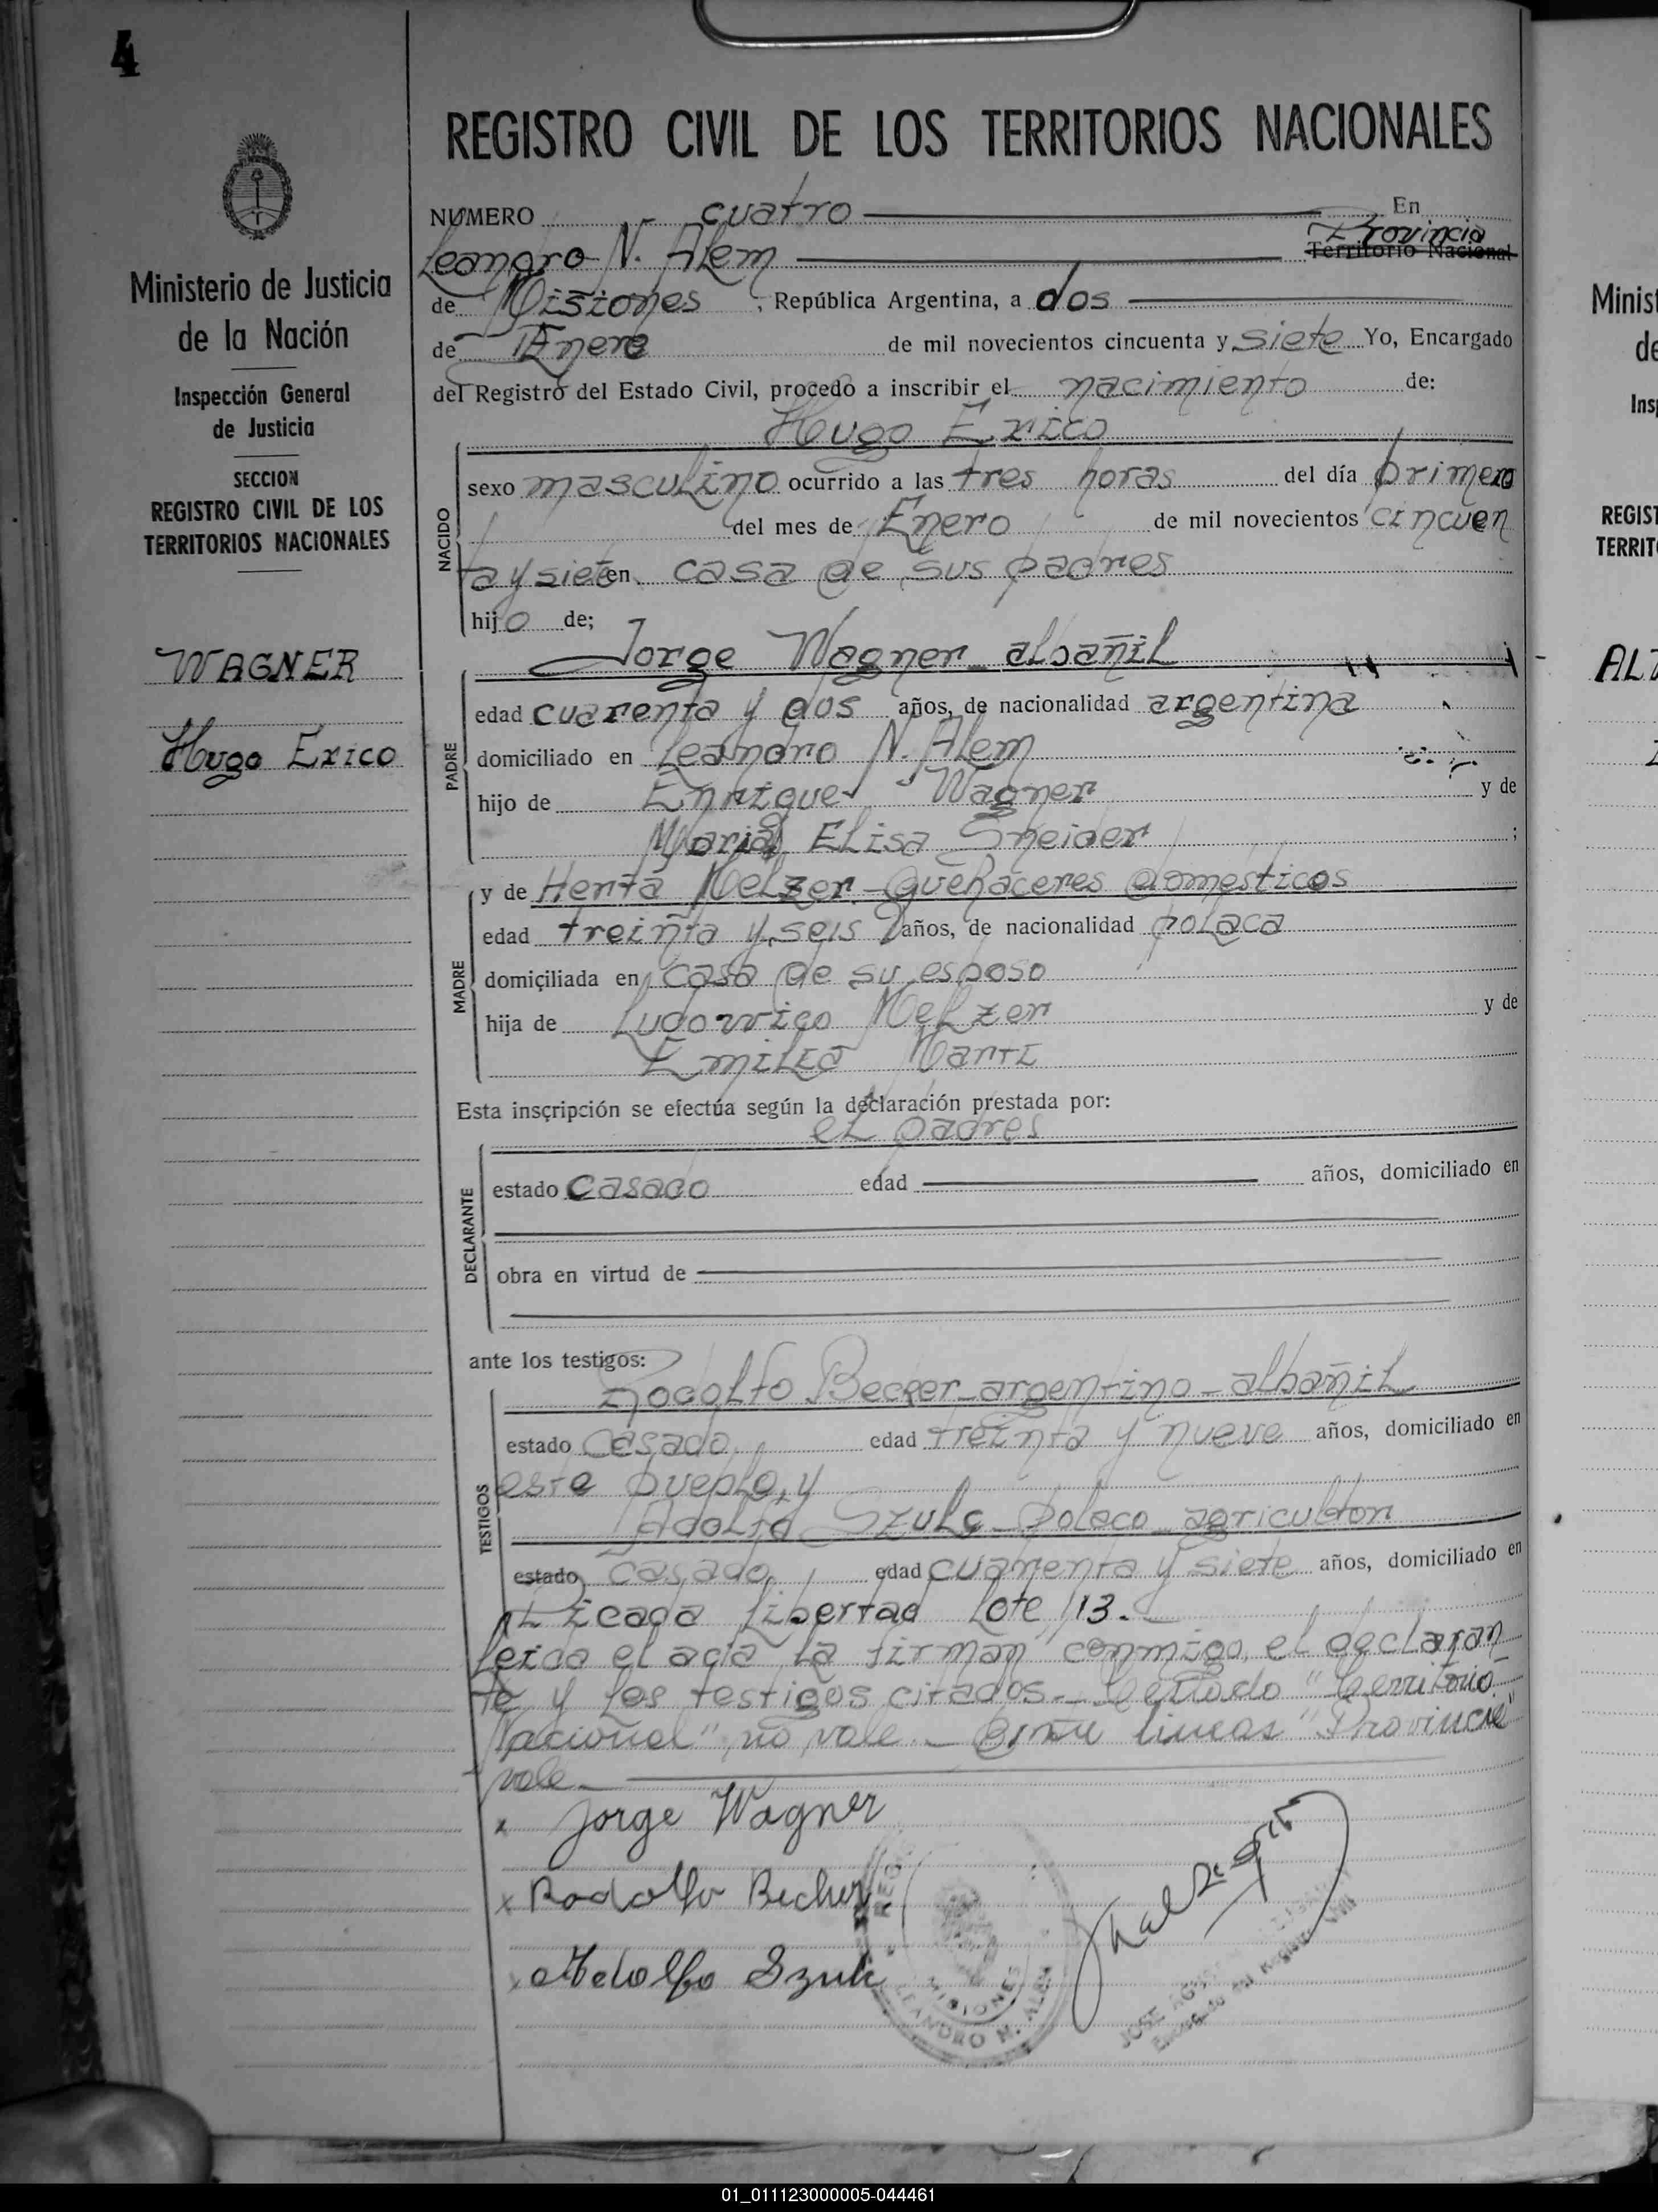 4
REGISTRO CIVIL DE LOS TERRITORIOS NACIONALES
Ministerio de Justicia
de la Nación
Inspección General
de Justicia
SECCION
REGISTRO CIVIL DE LOS
TERRITORIOS NACIONALES
WAGNER
Hugo Erico
NUMERO cuatro En
Leandro N. Alem Provincia Territorio Nacional
de Misiones, República Argentina, a dos
de Enero de mil novecientos cincuenta y siete Yo, Encargado
del Registro del Estado Civil, procedo a inscribir el nacimiento de:
Hugo Erico
NACIDO
sexo masculino ocurrido a las tres horas del día primero
del mes de Enero de mil novecientos cincuen
ta y siete en casa de sus padres
hijo de;
Jorge Wagner - albañil
PADRE
edad cuarenta y dos años, de nacionalidad argentina
domiciliado en Leandro N. Alem
hijo de Enrique Wagner y de
Maria Elisa Sneider ;
y de Herta Melzer - Quehaceres domésticos
MADRE
edad treinta y seis años, de nacionalidad polaca
domiciliada en casa de su esposo
hija de Ludovvico Melzer y de
Emilia
Esta inscripción se efectúa según la declaración prestada por:
el padres
DECLARANTE
estado casado edad años, domiciliado en
obra en virtud de
ante los testigos:
Rodolfo Becker - argentino - albañil
TESTIGOS
estado casado edad treinta y nueve años, domiciliado en
este pueblo, y
Adolfo Szulc - polaco - agricultor
estado casado edad cuarenta y siete años, domiciliado en
Picada Libertad Lote 113.-
Leida el acta la firman conmigo, el declaran
te y los testigos citados.- Testado "Territorio
Nacional" no vale - Entre lineas "Provincia"
vale.-
x Jorge Wagner
x Rodolfo Becker
x Adolfo Szulc
REG
MISIONES
LEANDRO N. ALEM
JOSE
Encargado del Registro Civil
Minist
de
Insp
REGIST
TERRIT
01_011123000005-044461